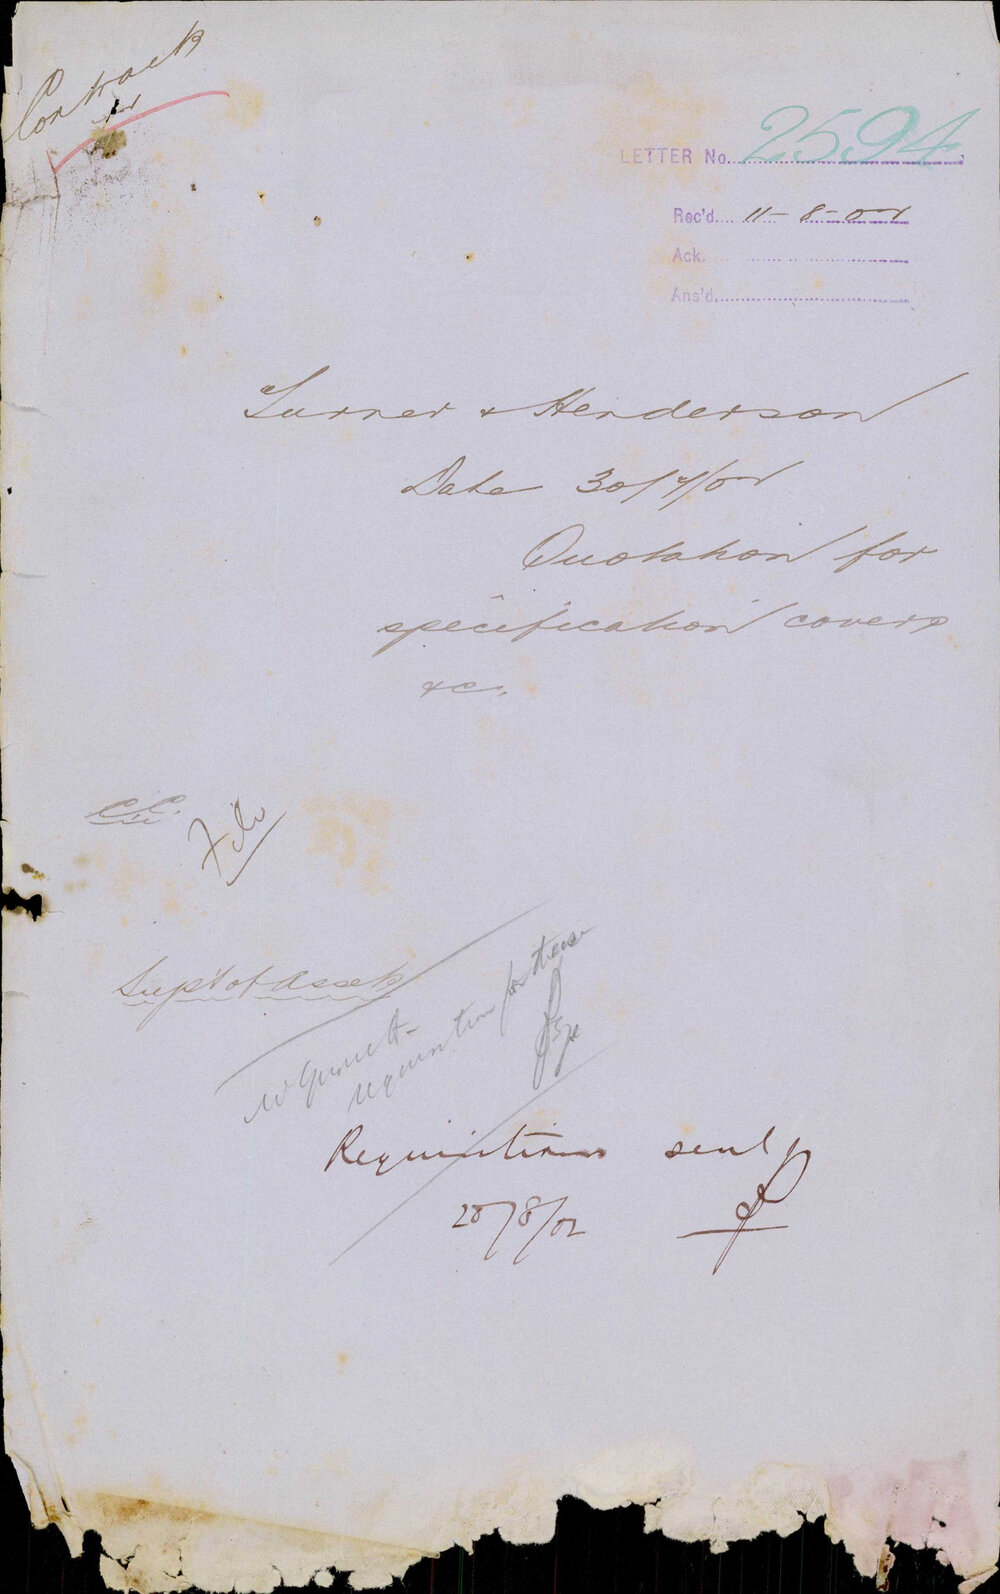 Contracts
LETTER No. 2594
Rec'd. 11-8-02
Ack.
Ans'd.
Turner & Henderson
Date 30/7/02
Quotation for
specification covers
&c.
C.C.
File
Supt of Assets
Mr
requisition for these
Requisition sent
28/8/02